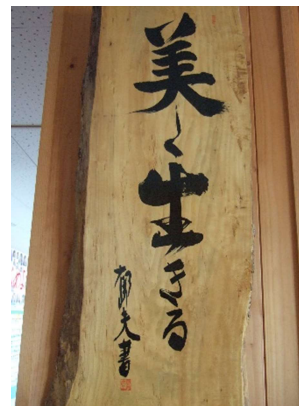 美しく生きる
郁夫書